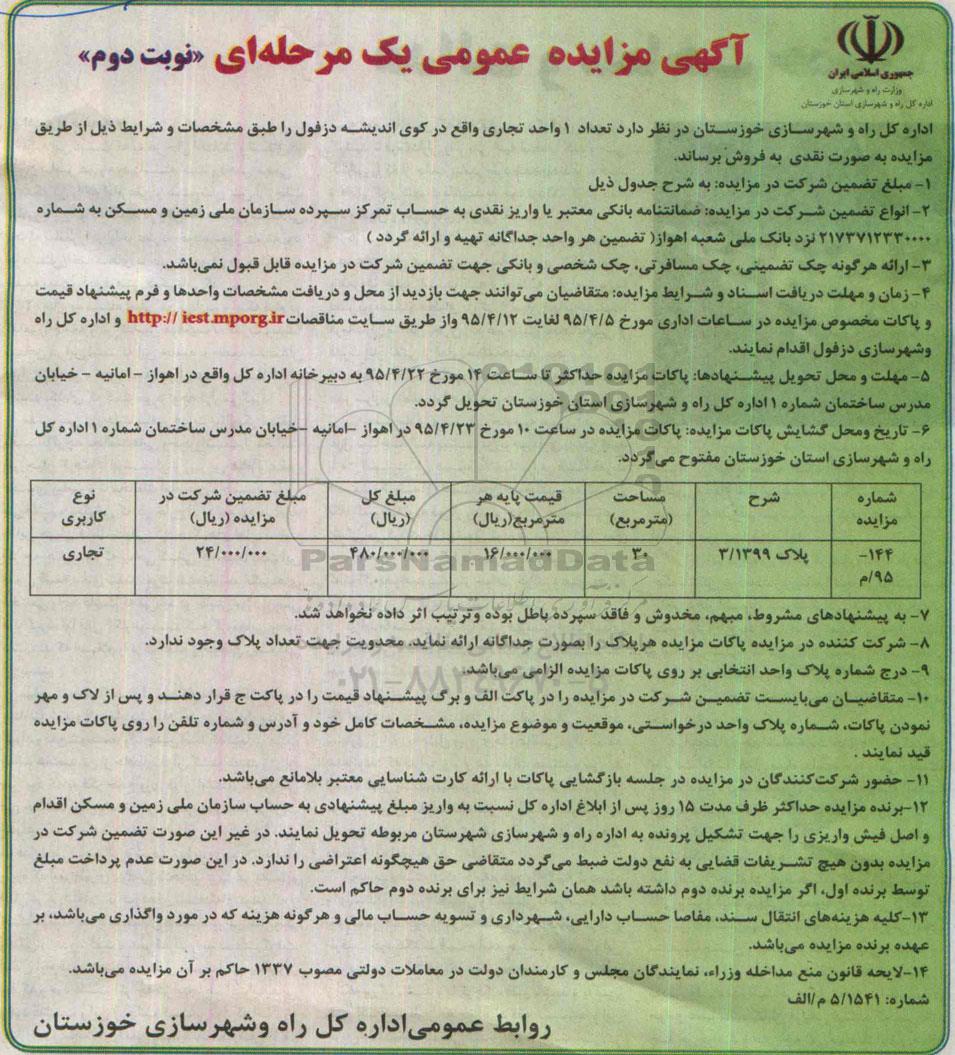 جمهوری اسلامی ایران
وزارت راه و شهرسازی
اداره کل راه و شهرسازی استان خوزستان
آگهی مزایده عمومی یک مرحله‌ای «نوبت دوم»
اداره کل راه و شهرسازی خوزستان در نظر دارد تعداد ۱ واحد تجاری واقع در کوی اندیشه دزفول را طبق مشخصات و شرایط ذیل از طریق
مزایده به صورت نقدی به فروش برساند.
۱- مبلغ تضمین شرکت در مزایده: به شرح جدول ذیل
۲- انواع تضمین شرکت در مزایده: ضمانتنامه بانکی معتبر یا واریز نقدی به حساب تمرکز سپرده سازمان ملی زمین و مسکن به شماره
۲۱۷۳۷۱۲۳۳۰۰۰۰ نزد بانک ملی شعبه اهواز( تضمین هر واحد جداگانه تهیه و ارائه گردد )
۳- ارائه هرگونه چک تضمینی، چک مسافرتی، چک شخصی و بانکی جهت تضمین شرکت در مزایده قابل قبول نمی‌باشد.
۴- زمان و مهلت دریافت اسناد و شرایط مزایده: متقاضیان می‌توانند جهت بازدید از محل و دریافت مشخصات واحدها و فرم پیشنهاد قیمت
و پاکات مخصوص مزایده در ساعات اداری مورخ ۹۵/۴/۵ لغایت ۹۵/۴/۱۲ واز طریق سایت مناقصات http:// iest.mporg.ir و اداره کل راه
وشهرسازی دزفول اقدام نمایند.
۵- مهلت و محل تحویل پیشنهادها: پاکات مزایده حداکثر تا ساعت ۱۴ مورخ ۹۵/۴/۲۲ به دبیرخانه اداره کل واقع در اهواز - امانیه - خیابان
مدرس ساختمان شماره ۱ اداره کل راه و شهرسازی استان خوزستان تحویل گردد.
۶- تاریخ ومحل گشایش پاکات مزایده: پاکات مزایده در ساعت ۱۰ مورخ ۹۵/۴/۲۳ در اهواز -امانیه -خیابان مدرس ساختمان شماره ۱ اداره کل
راه و شهرسازی استان خوزستان مفتوح می‌گردد.
شماره مزایده | شرح | مساحت (مترمربع) | قیمت پایه هر مترمربع(ریال) | مبلغ کل (ریال) | مبلغ تضمین شرکت در مزایده (ریال) | نوع کاربری
۱۴۴-۹۵/م | پلاک ۳/۱۳۹۹ | ۳۰ | ۱۶/۰۰۰/۰۰۰ | ۴۸۰/۰۰۰/۰۰۰ | ۲۴/۰۰۰/۰۰۰ | تجاری
ParsNamadData
۷- به پیشنهادهای مشروط، مبهم، مخدوش و فاقد سپرده باطل بوده وترتیب اثر داده نخواهد شد.
۸- شرکت کننده در مزایده پاکات مزایده هرپلاک را بصورت جداگانه ارائه نماید. محدویت جهت تعداد پلاک وجود ندارد.
۹- درج شماره پلاک واحد انتخابی بر روی پاکات مزایده الزامی می‌باشد.
۱۰- متقاضیان می‌بایست تضمین شرکت در مزایده را در پاکت الف و برگ پیشنهاد قیمت را در پاکت ج قرار دهند و پس از لاک و مهر
نمودن پاکات، شماره پلاک واحد درخواستی، موقعیت و موضوع مزایده، مشخصات کامل خود و آدرس و شماره تلفن را روی پاکات مزایده
قید نمایند .
۱۱- حضور شرکت‌کنندگان در مزایده در جلسه بازگشایی پاکات با ارائه کارت شناسایی معتبر بلامانع می‌باشد.
۱۲-برنده مزایده حداکثر ظرف مدت ۱۵ روز پس از ابلاغ اداره کل نسبت به واریز مبلغ پیشنهادی به حساب سازمان ملی زمین و مسکن اقدام
و اصل فیش واریزی را جهت تشکیل پرونده به اداره راه و شهرسازی شهرستان مربوطه تحویل نمایند. در غیر این صورت تضمین شرکت در
مزایده بدون هیچ تشریفات قضایی به نفع دولت ضبط می‌گردد متقاضی حق هیچگونه اعتراضی را ندارد. در این صورت عدم پرداخت مبلغ
توسط برنده اول، اگر مزایده برنده دوم داشته باشد همان شرایط نیز برای برنده دوم حاکم است.
۱۳-کلیه هزینه‌های انتقال سند، مفاصا حساب دارایی، شهرداری و تسویه حساب مالی و هرگونه هزینه که در مورد واگذاری می‌باشد، بر
عهده برنده مزایده می‌باشد.
۱۴-لایحه قانون منع مداخله وزراء، نمایندگان مجلس و کارمندان دولت در معاملات دولتی مصوب ۱۳۳۷ حاکم بر آن مزایده می‌باشد.
شماره: ۵/۱۵۴۱ م/الف
روابط عمومی‌اداره کل راه وشهرسازی خوزستان